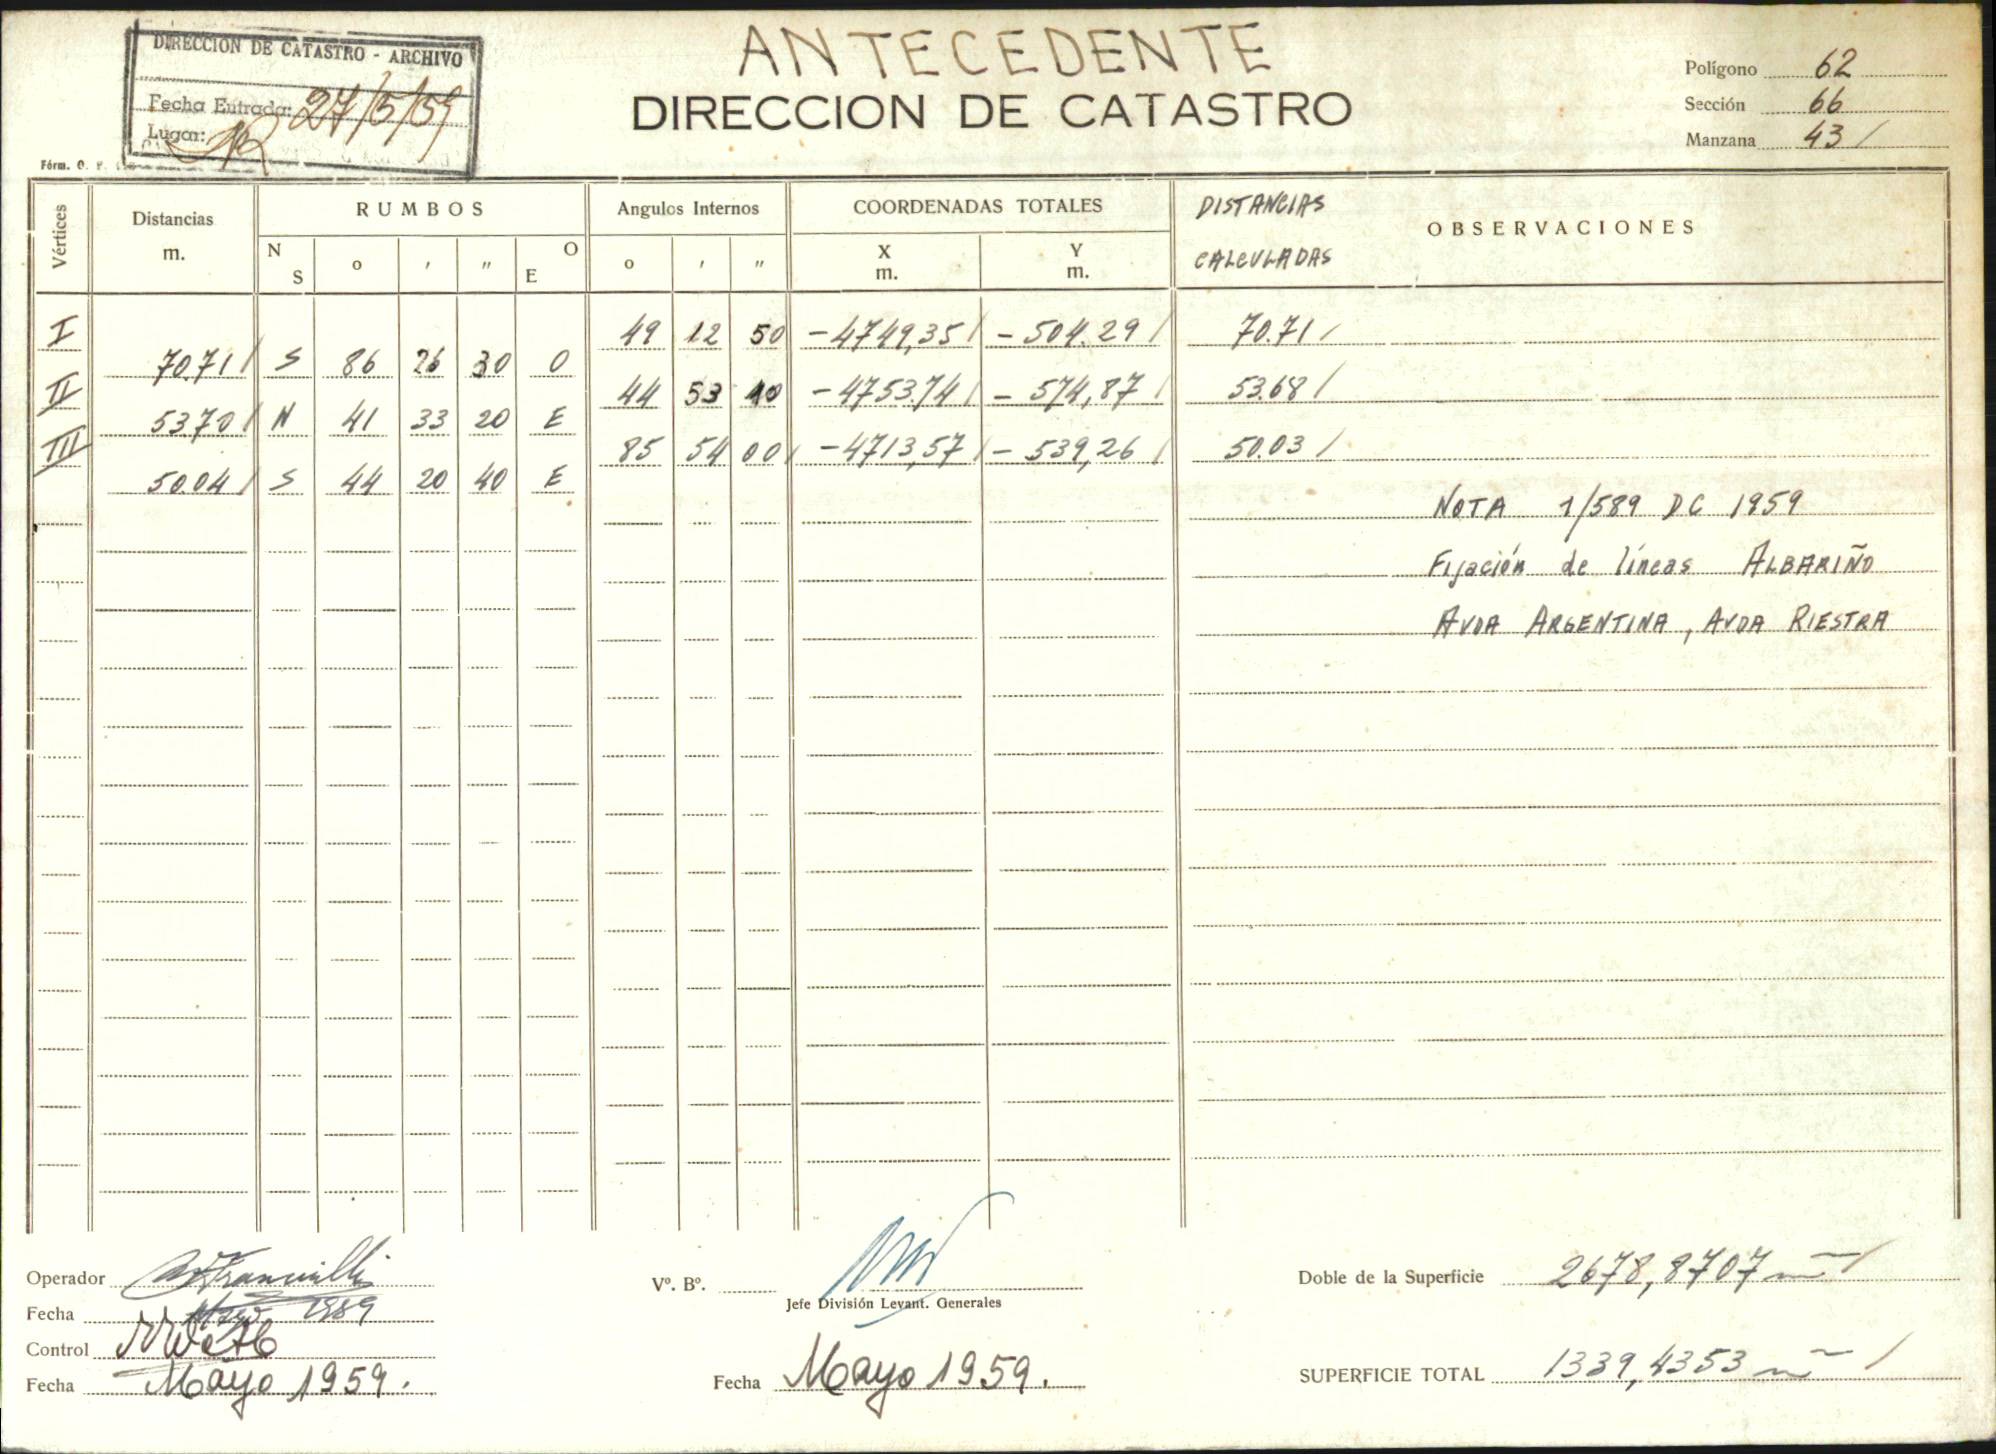 ANTECEDENTE
DIRECCION DE CATASTRO
DIRECCION DE CATASTRO - ARCHIVO
Fecha Entrada: 27/5/59
Lugar:
Fórm. O. P.
Polígono 62
Sección 66
Manzana 43 /
Vértices
Distancias m.
RUMBOS
N S o ' " O E
Angulos Internos
o ' "
COORDENADAS TOTALES
X m. Y m.
DISTANCIAS CALCULADAS
OBSERVACIONES
I 49 12 50 -4749,35 / -504.29 / 70.71 /
70.71 / S 86 26 30 O
II 44 53 10 -4753.74 / -574,87 / 53.68 /
53.70 / N 41 33 20 E
III 85 54 00 / -4713,57 / -539,26 / 50.03 /
50.04 / S 44 20 40 E
NOTA 1/589 DC 1959
Fijación de líneas ALBARIÑO
AVDA ARGENTINA, AVDA RIESTRA
Operador
Fecha Mayo 1959
Control
Fecha Mayo 1959.
Vº. Bº.
Jefe División Levant. Generales
Fecha Mayo 1959.
Doble de la Superficie 2678,8707 m² /
SUPERFICIE TOTAL 1339,4353 m² /